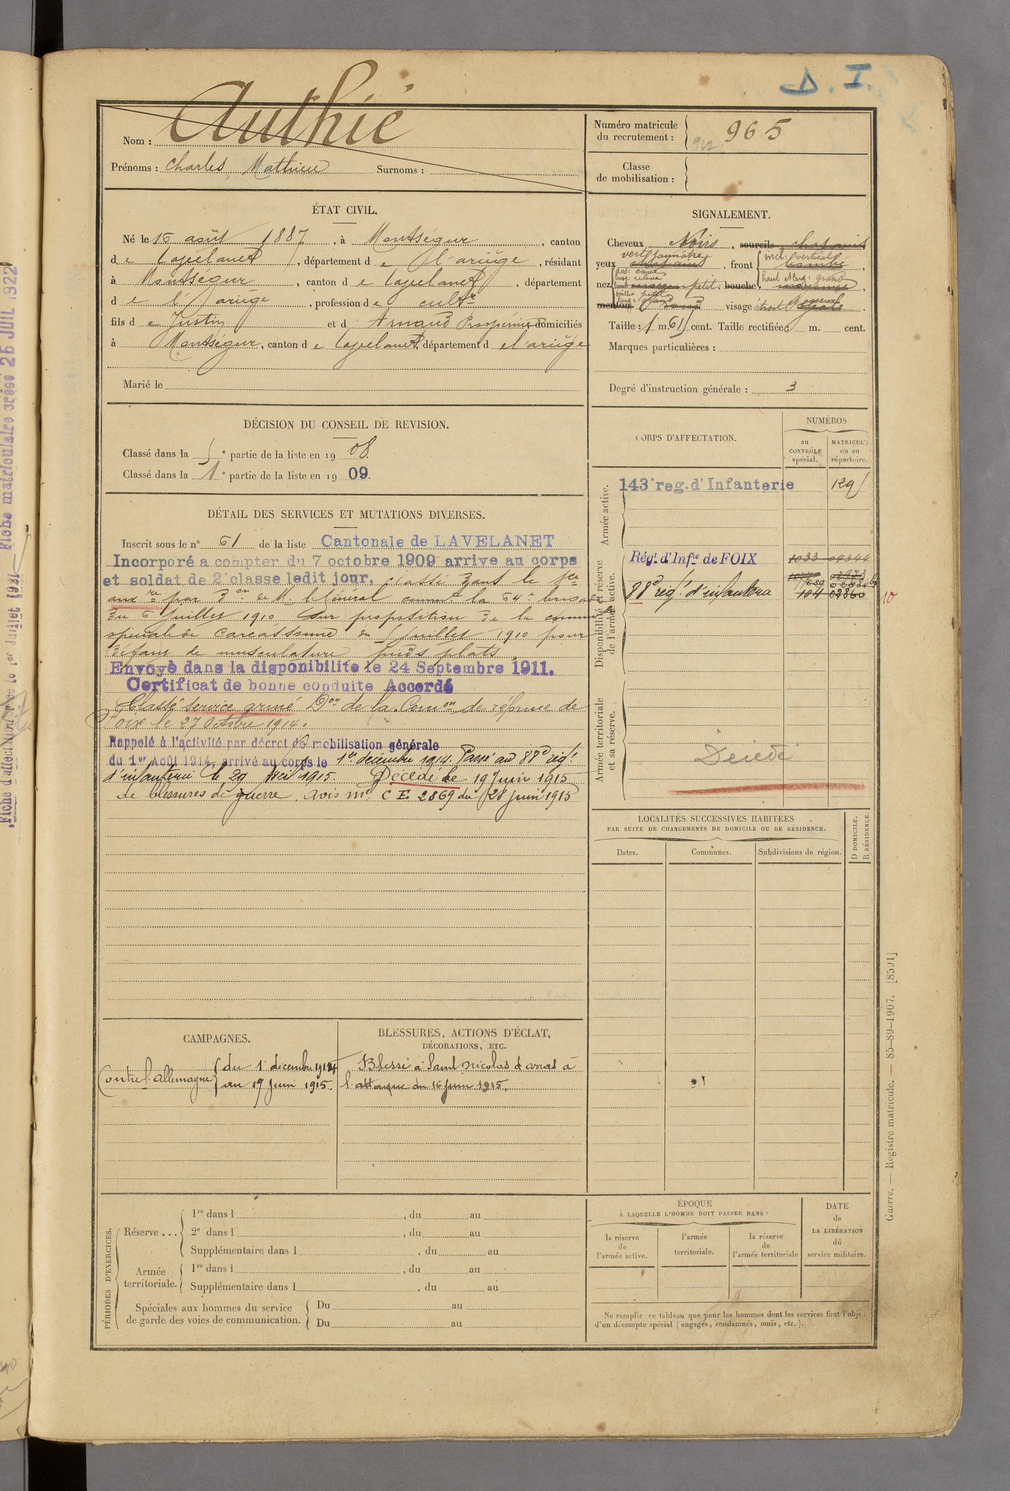 D. I.
Nom : Authié
Prénoms : Charles, Mathieu Surnoms :
Numéro matricule du recrutement : 965
Classe de mobilisation :
ÉTAT CIVIL.
Né le 16 août 1887, à Montségur, canton
de Lavelanet, département de l'ariège, résidant
à Montségur, canton de Lavelanet, département
de l'ariège, profession de cultr
fils de Justin et d'Arnaud Prospérine domiciliés
à Montségur, canton de Lavelanet, département de l'ariège
Marié le
SIGNALEMENT.
Cheveux Noirs, sourcils châtains
yeux, front
nez, bouche
menton visage
Taille : 1 m. 61 cent. Taille rectifiée m. cent.
Marques particulières :
Degré d'instruction générale : 3
DÉCISION DU CONSEIL DE REVISION.
Classé dans la 5e partie de la liste en 1908
Classé dans la 1e partie de la liste en 1909.
DÉTAIL DES SERVICES ET MUTATIONS DIVERSES.
Inscrit sous le n° 61 de la liste Cantonale de LAVELANET
Incorporé a compter du 7 octobre 1909 arrive au corps
et soldat de 2e classe ledit jour, classé dans le sce
auxre par Don de Mr le Général commt la 64e brigade
du 6 juillet 1910 sur proposition de la comm
spéciale de Carcassonne de juillet 1910 pour
défaut de musculature pieds plats.
Envoyé dans la disponibilite le 24 Septembre 1911.
Certificat de bonne conduite Accordé
Classé service armé Don de la Comon de réforme de
Foix le 27 octobre 1914.
Rappelé à l'activité par décret de mobilisation générale
du 1er Août 1914, arrivé au corps le 1er décembre 1914. Passé au 88e régt
d'infanterie le 29 Avril 1915. Décédé le 19 Juin 1915
de blessures de guerre, avis mel C E 2869 du 28 juin 1915
CORPS D'AFFECTATION.
NUMÉROS
au CONTRÔLE spécial.
MATRICULE ou au répertoire.
Armée active.
143e reg. d'Infanterie
Disponibilité et réserve de l'armée active.
Régt d'Infie de FOIX
88e régt d'infanterie
Armée territoriale et sa réserve.
Décédé
LOCALITÉS SUCCESSIVES HABITÉES
PAR SUITE DE CHANGEMENTS DE DOMICILE OU DE RÉSIDENCE.
Dates.
Communes.
Subdivisions de région.
D DOMICILE. R RÉSIDENCE.
CAMPAGNES.
Contre l'allemagne du 1er décembre 1914
au 19 juin 1915.
BLESSURES, ACTIONS D'ÉCLAT,
DÉCORATIONS, ETC.
Blessé à Saint nicolas d'arras à
l'attaque du 16 juin 1915.
PÉRIODES D'EXERCICES.
Réserve...
1re dans l , du au
2e dans l , du au
Supplémentaire dans l , du au
Armée territoriale.
1re dans l , du au
Supplémentaire dans l , du au
Spéciales aux hommes du service
de garde des voies de communication.
Du au
Du au
ÉPOQUE
À LAQUELLE L'HOMME DOIT PASSER DANS :
la réserve de l'armée active.
l'armée territoriale.
la réserve de l'armée territoriale
DATE de LA LIBÉRATION du service militaire.
Ne remplir ce tableau que pour les hommes dont les services font l'objet
d'un décompte spécial (engagés, condamnés, omis, etc.).
Guerre. — Registre matricule. — 85-89-1907. [8591]
Fiche matriculaire créée 25 JUIL 1922